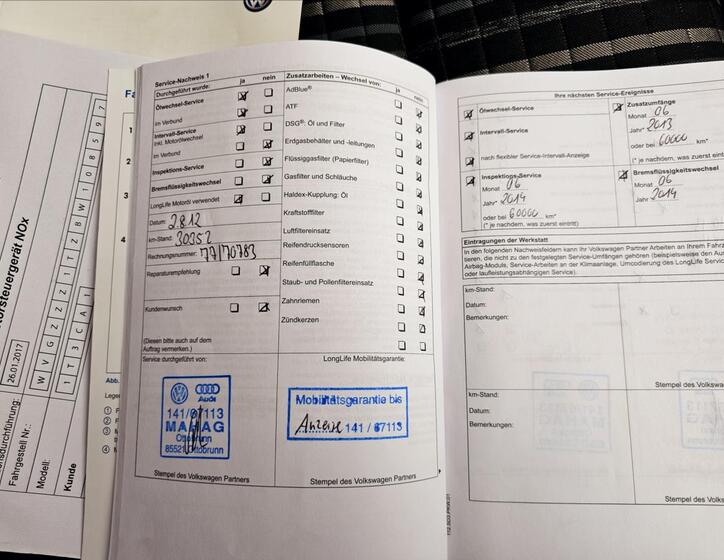 otorsteuergerät NOx
26.01.2017
Fahrgestell Nr.:
W V G Z Z Z 1 T Z B W 1 0 8 5 9 7
Modell:
1 T 3 C A 1
Kunde
Fa
1
2
3
4
Abb.
Service-Nachweis 1
Durchgeführt wurde: ja nein
Ölwechsel-Service
im Verbund
Intervall-Service
inkl. Motorölwechsel
im Verbund
Inspektions-Service
Bremsflüssigkeitswechsel
LongLife Motoröl verwendet
Datum: 2.8.12
km-Stand: 30352
Rechnungsnummer: 77/70783
Reparaturempfehlung
Kundenwunsch
(Diesen bitte auch auf dem
Auftrag vermerken.)
Service durchgeführt von:
Audi
141/67113
MAHAG
Ottobrunn
85521 Ottobrunn
Stempel des Volkswagen Partners
Zusatzarbeiten – Wechsel von: ja nein
AdBlue®
ATF
DSG®: Öl und Filter
Erdgasbehälter und -leitungen
Flüssiggasfilter (Papierfilter)
Gasfilter und Schläuche
Haldex-Kupplung: Öl
Kraftstofffilter
Luftfiltereinsatz
Reifendrucksensoren
Reifenfüllflasche
Staub- und Pollenfiltereinsatz
Zahnriemen
Zündkerzen
LongLife Mobilitätsgarantie:
Mobilitätsgarantie bis
Anzeige 141 / 67113
Stempel des Volkswagen Partners
Ihre nächsten Service-Ereignisse
Ölwechsel-Service
Intervall-Service
nach flexibler Service-Intervall-Anzeige
Inspektions-Service
Monat 06
Jahr* 2014
oder bei 60000 km*
(* je nachdem, was zuerst eintritt)
Zusatzumfänge
Monat 06
Jahr* 2013
oder bei 60000 km*
(* je nachdem, was zuerst eint
Bremsflüssigkeitswechsel
Monat 06
Jahr 2014
Eintragungen der Werkstatt
In den folgenden Nachweisfeldern kann Ihr Volkswagen Partner Arbeiten an Ihrem Fahrz
tieren, die nicht zu den festgelegten Service-Umfängen gehören (beispielsweise den Aus
Airbag-Moduls, Service-Arbeiten an der Klimaanlage, Umcodierung des LongLife Servic
oder laufleistungsabhängigen Service).
km-Stand:
Datum:
Bemerkungen:
Stempel des Volkswa
km-Stand:
Datum:
Bemerkungen:
Stempel des Volkswa